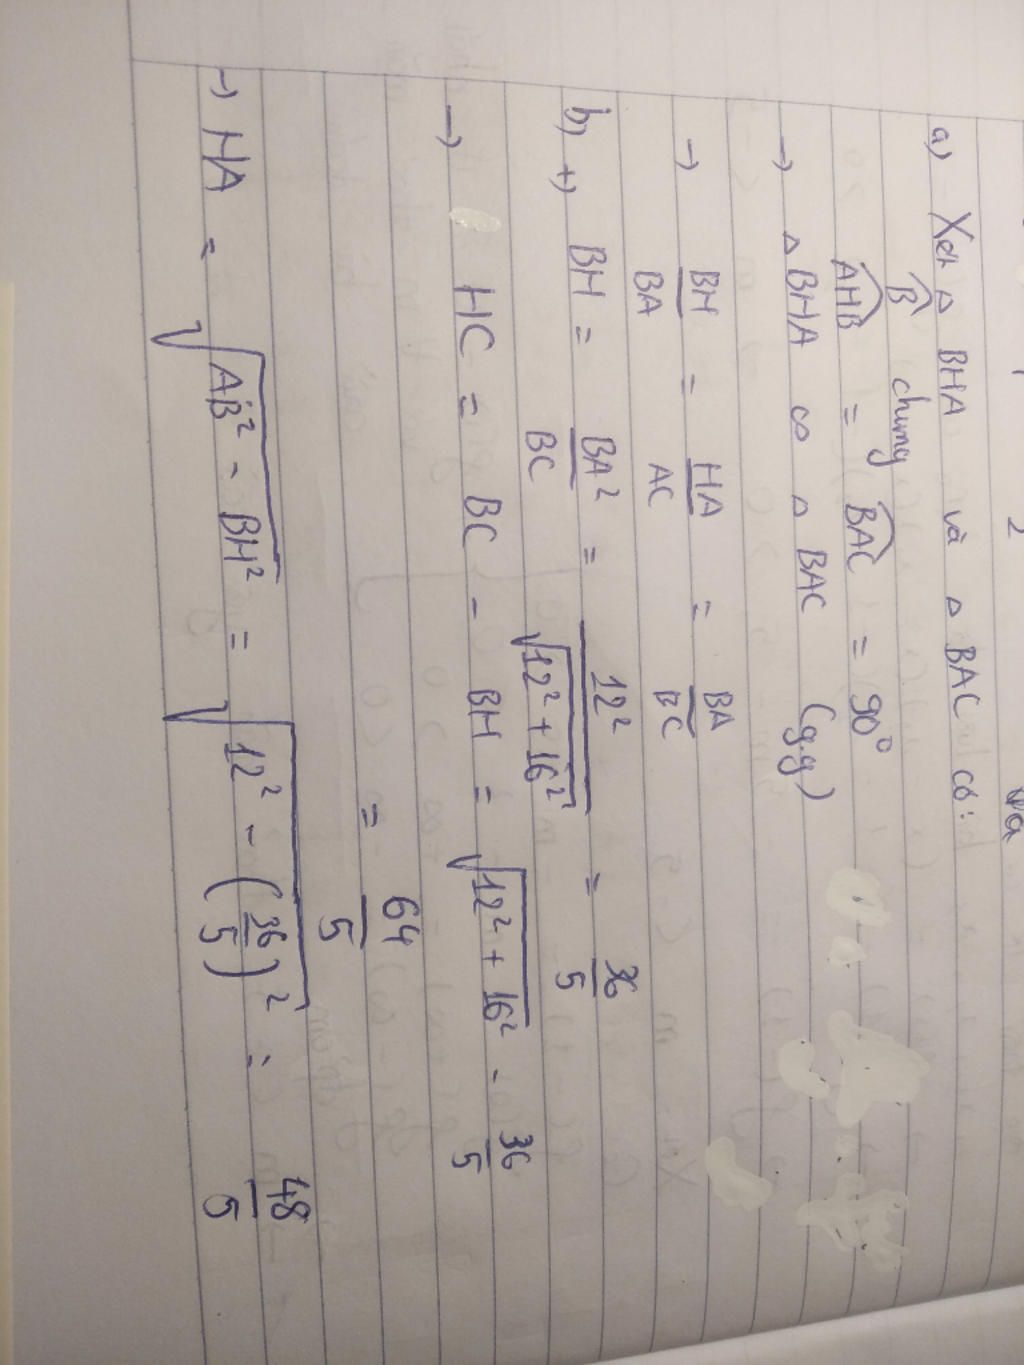 2
a) Xét △ BHA và △ BAC có:
B̂ chung
AHB = BAC = 90°
→ △ BHA ∽ △ BAC (g.g)
→ BH/BA = HA/AC = BA/BC
b, +) BH = BA²/BC = 12²/√(12² + 16²) = 36/5
→ HC = BC - BH = √(12² + 16²) - 36/5
= 64/5
→ HA = √(AB² - BH²) = √(12² - (36/5)²) = 48/5